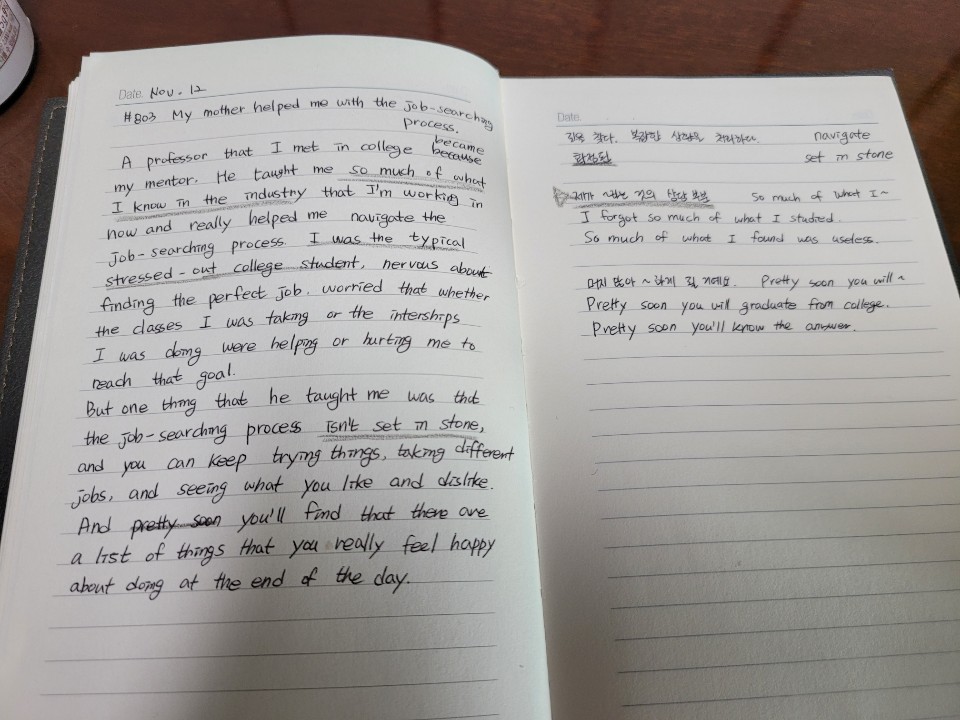 Date. Nov. 12
#803 My mother helped me with the job-searching
process.
became
A professor that I met in college because
my mentor. He taught me so much of what
I know in the industry that I'm working in
now and really helped me navigate the
job-searching process. I was the typical
stressed-out college student, nervous about
finding the perfect job. worried that whether
the classes I was taking or the interships
I was doing were helping or hurting me to
reach that goal.
But one thing that he taught me was that
the job-searching process isn't set in stone,
and you can keep trying things, taking different
jobs, and seeing what you like and dislike.
And pretty soon you'll find that there are
a list of things that you really feel happy
about doing at the end of the day.
Date.
길을 찾다. 복잡한 상황을 처리하다. navigate
확정된 set in stone
제가 ~하는 것의 상당 부분 So much of what I~
I forgot so much of what I studied.
So much of what I found was useless.
머지 않아 ~ 하게 될 거예요. Pretty soon you will~
Pretty soon you will graduate from college.
Pretty soon you'll know the answer.